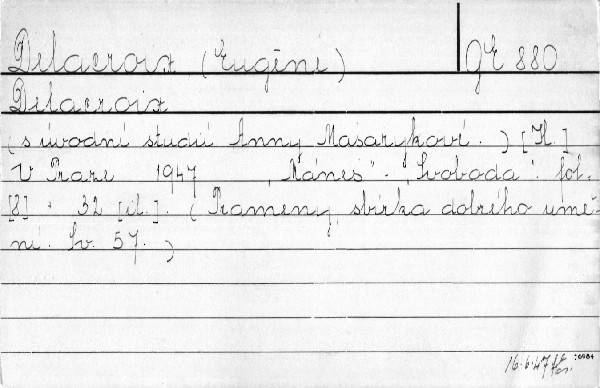 Delacroix (Eugène) GE 880
Delacroix
(s úvodní studií Anny Masarykové.) [H.]
V Praze 1947 „Nánes“ - „Svoboda“. fol.
[8] + 32 [il.]. (Prameny, sbírka dobrého umě-
ní. Sv. 57.)
16.6.47